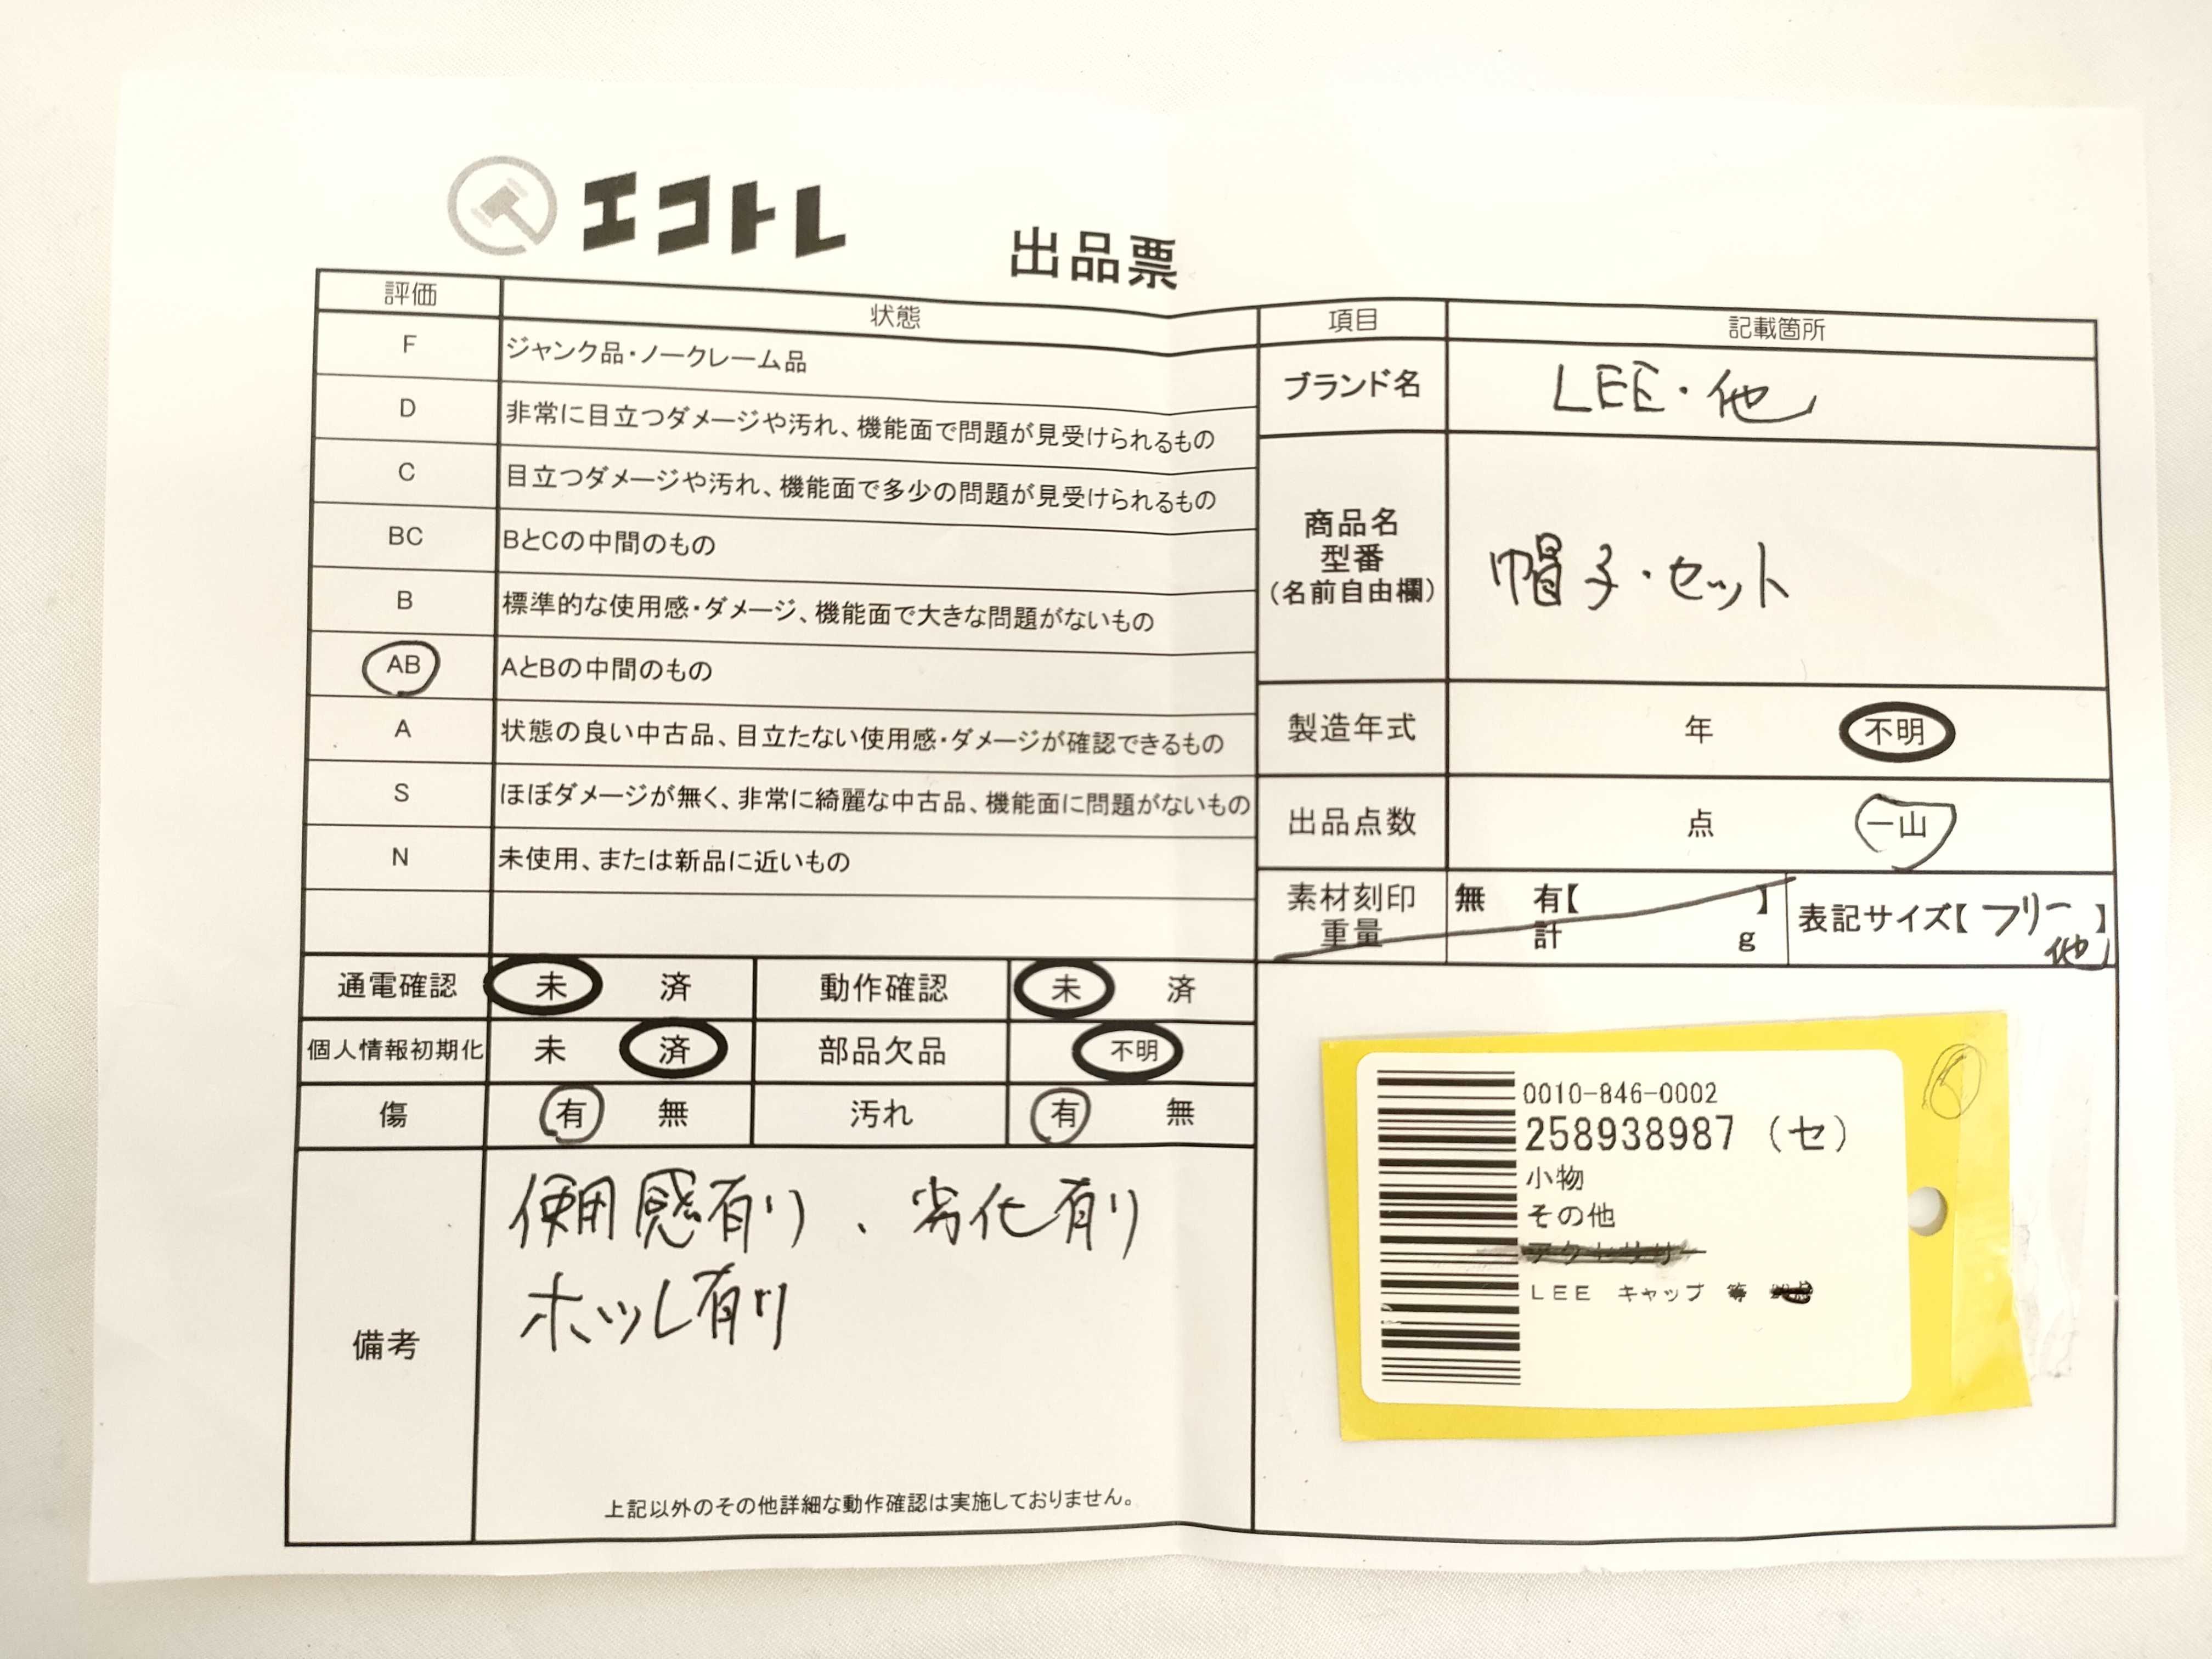 エコトレ
出品票
評価 状態
F ジャンク品・ノークレーム品
D 非常に目立つダメージや汚れ、機能面で問題が見受けられるもの
C 目立つダメージや汚れ、機能面で多少の問題が見受けられるもの
BC BとCの中間のもの
B 標準的な使用感・ダメージ、機能面で大きな問題がないもの
AB AとBの中間のもの
A 状態の良い中古品、目立たない使用感・ダメージが確認できるもの
S ほぼダメージが無く、非常に綺麗な中古品、機能面に問題がないもの
N 未使用、または新品に近いもの
通電確認 未 済 動作確認 未 済
個人情報初期化 未 済 部品欠品 不明
傷 有 無 汚れ 有 無
備考
使用感有り、劣化有り
ホツレ有り
上記以外のその他詳細な動作確認は実施しておりません。
項目 記載箇所
ブランド名 LEE・他
商品名
型番
(名前自由欄)
帽子・セット
製造年式 年 不明
出品点数 点 一山
素材刻印 無 有【 】
重量 計 g
表記サイズ【フリー他】
0010-846-0002
258938987 (セ)
小物
その他
アクセサリー
LEE キャップ 等